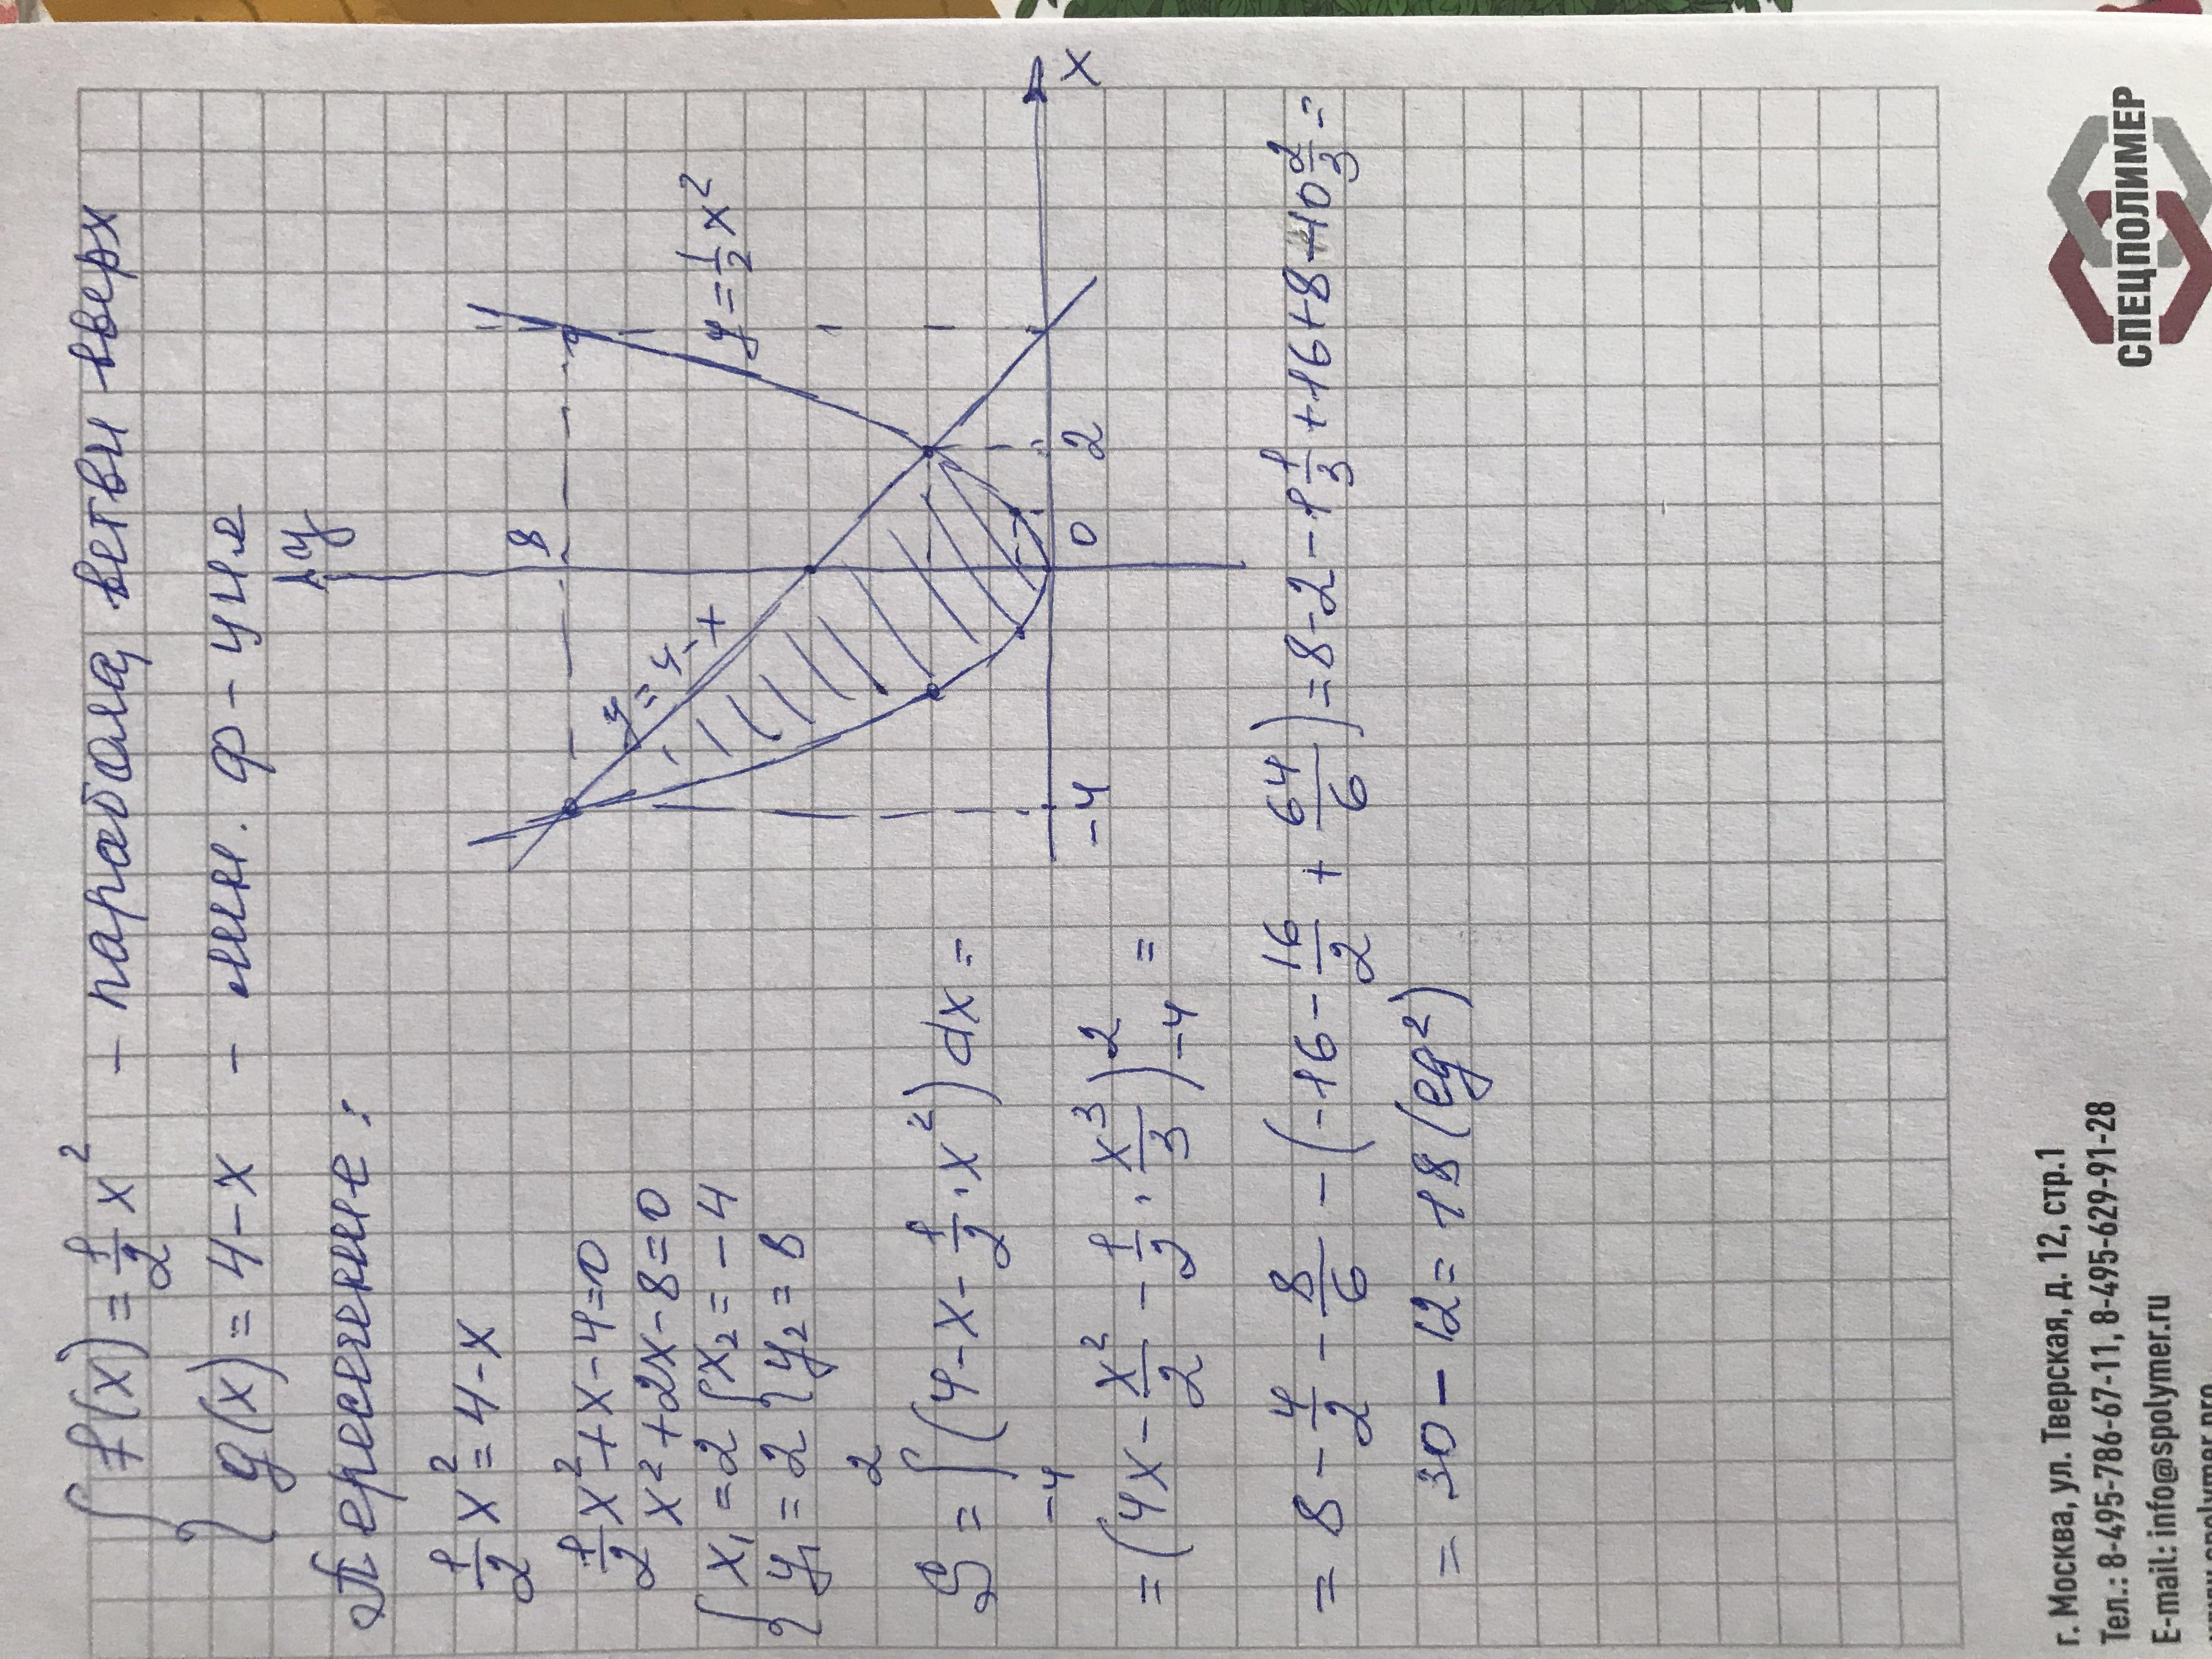 { f(x) = 1/2 x² – парабола, ветви вверх
{ g(x) = 4 – x – лин. ф-ция
Пересечение:
1/2 x² = 4 – x
1/2 x² + x – 4 = 0
x² + 2x – 8 = 0
{ x₁ = 2 { x₂ = –4
{ y₁ = 2 { y₂ = 8
y
8
y = 4 – x
y = 1/2 x²
–4
0
2
x
S = ∫₋₄² (4 – x – 1/2 · x²) dx =
= (4x – x²/2 – 1/2 · x³/3)²₋₄ =
= 8 – 4/2 – 8/6 – (–16 – 16/2 + 64/6) = 8 – 2 – 1 1/3 + 16 + 8 – 10 2/3 =
= 30 – 12 = 18 (ед²)
СПЕЦПОЛИМЕР
г. Москва, ул. Тверская, д. 12, стр.1
Тел.: 8-495-786-67-11, 8-495-629-91-28
E-mail: info@spolymer.ru